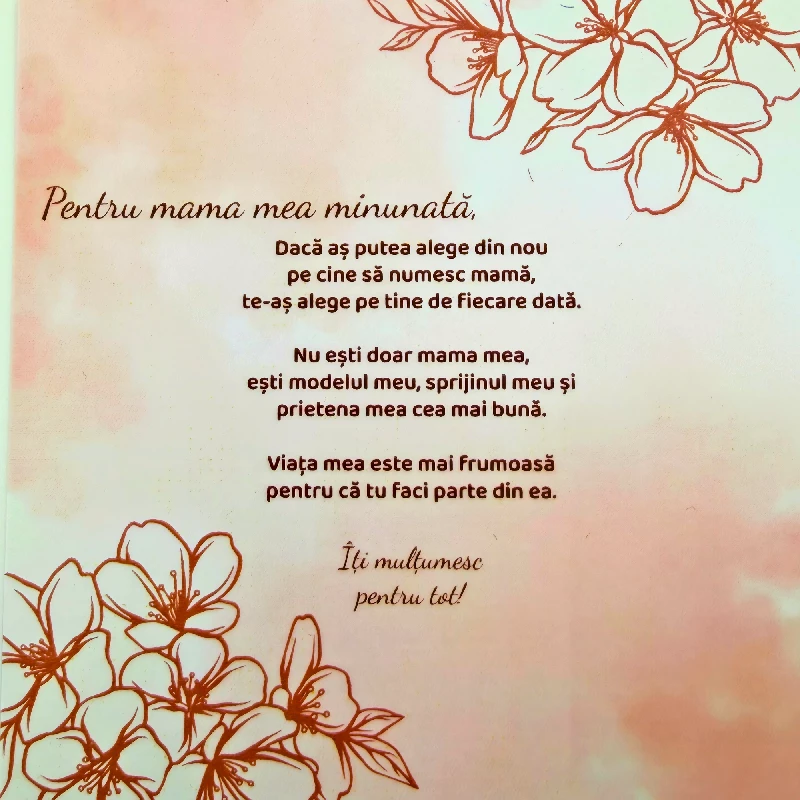 Pentru mama mea minunată,
Dacă aș putea alege din nou
pe cine să numesc mamă,
te-aș alege pe tine de fiecare dată.
Nu ești doar mama mea,
ești modelul meu, sprijinul meu și
prietena mea cea mai bună.
Viața mea este mai frumoasă
pentru că tu faci parte din ea.
Îți mulțumesc
pentru tot!